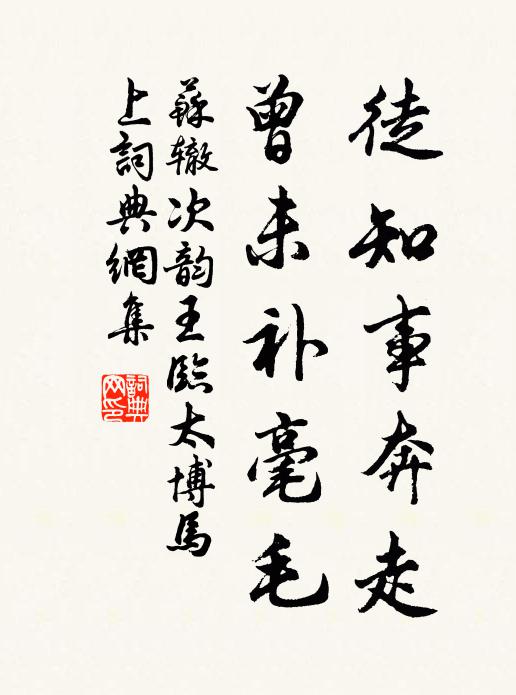 徒知事奔走
曾未补毫毛
蘇辙次韵王臨太博馬
上詞典網集
詞典网印